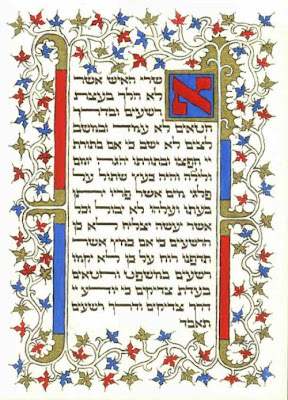 אשרי האיש אשר
לא הלך בעצות
רשעים ובדרך
חטאים לא עמד ובמושב
לצים לא ישב כי אם בתורת
יי חפצו ובתורתו יהגה יומם
ולילה והיה כעץ שתול על
פלגי מים אשר פריו יתן
בעתו ועלהו לא יבול וכל
אשר יעשה יצליח לא כן
הרשעים כי אם כמוץ אשר
תדפנו רוח על כן לא יקמו
רשעים במשפט וחטאים
בעדת צדיקים כי יודע יי
דרך צדיקים ודרך רשעים
תאבד